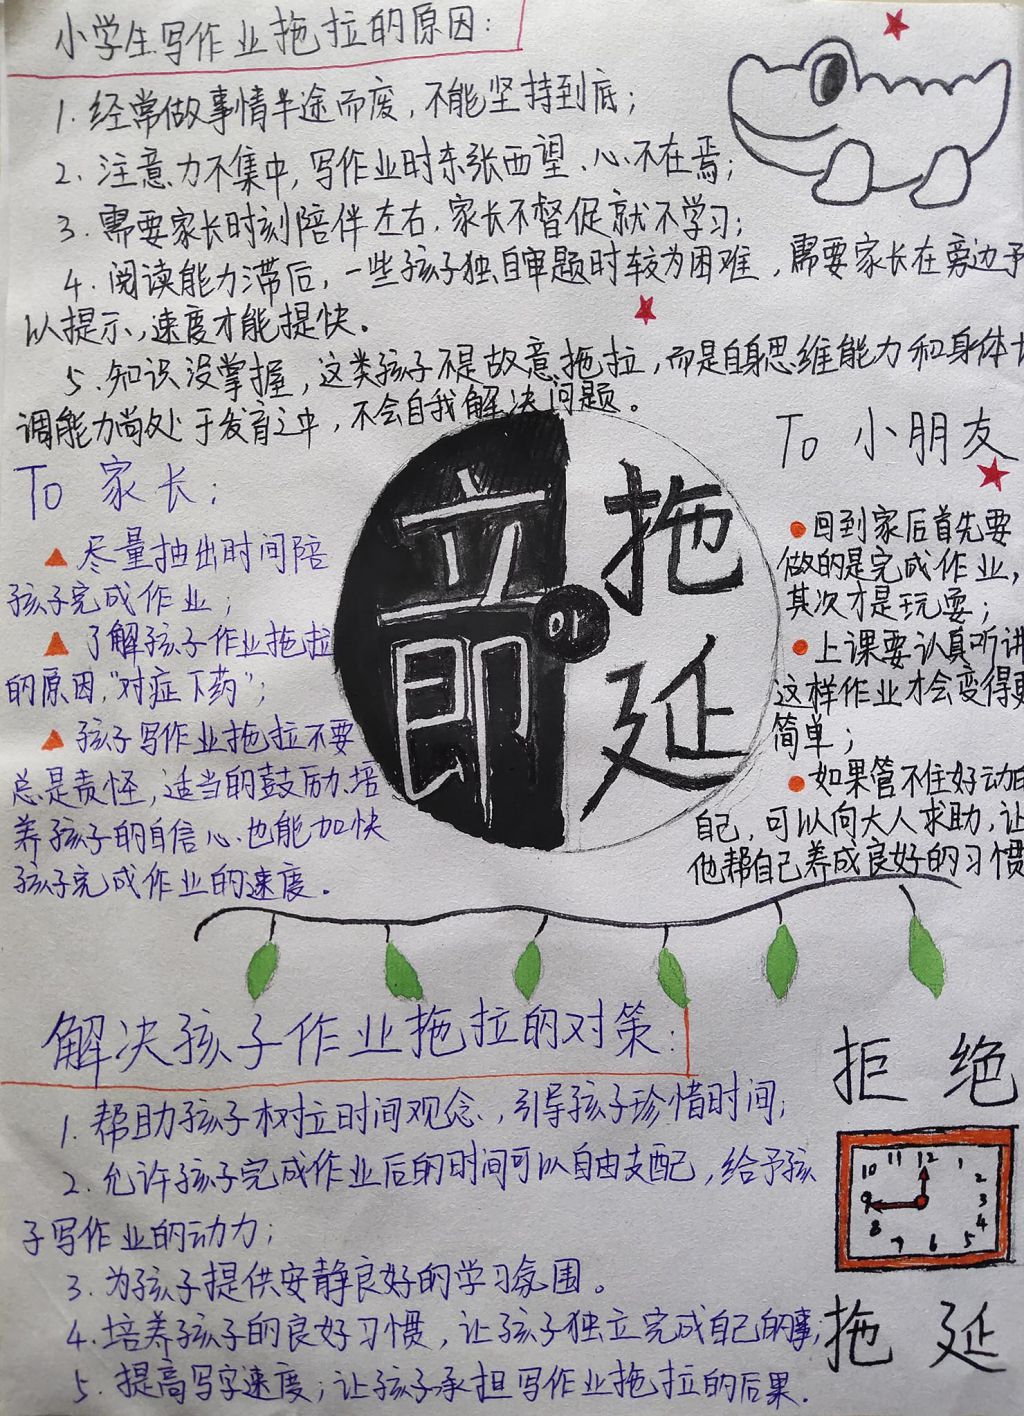 小学生写作业拖拉的原因：
1. 经常做事情半途而废，不能坚持到底；
2. 注意力不集中，写作业时东张西望、心不在焉；
3. 需要家长时刻陪伴左右，家长不督促就不学习；
4. 阅读能力滞后，一些孩子独自审题时较为困难，需要家长在旁边予
以提示，速度才能提快。
5. 知识没掌握，这类孩子不是故意拖拉，而是自身思维能力和身体协
调能力尚处于发育之中，不会自我解决问题。
To 家长：
▲ 尽量抽出时间陪
孩子完成作业；
▲ 了解孩子作业拖拉
的原因，“对症下药”；
▲ 孩子写作业拖拉不要
总是责怪，适当的鼓励、培
养孩子的自信心、也能加快
孩子完成作业的速度。
立即
or
拖延
To 小朋友
● 回到家后首先要
做的是完成作业，
其次才是玩耍；
● 上课要认真听讲
这样作业才会变得更
简单；
● 如果管不住好动的
自己，可以向大人求助，让
他帮自己养成良好的习惯
解决孩子作业拖拉的对策：
1. 帮助孩子树立时间观念，引导孩子珍惜时间；
2. 允许孩子完成作业后的时间可以自由支配，给予孩
子写作业的动力；
3. 为孩子提供安静良好的学习氛围。
4. 培养孩子的良好习惯，让孩子独立完成自己的事；
5. 提高写字速度；让孩子承担写作业拖拉的后果.
拒绝
12 1 2 3 4 5 6 7 8 9 10 11
拖延